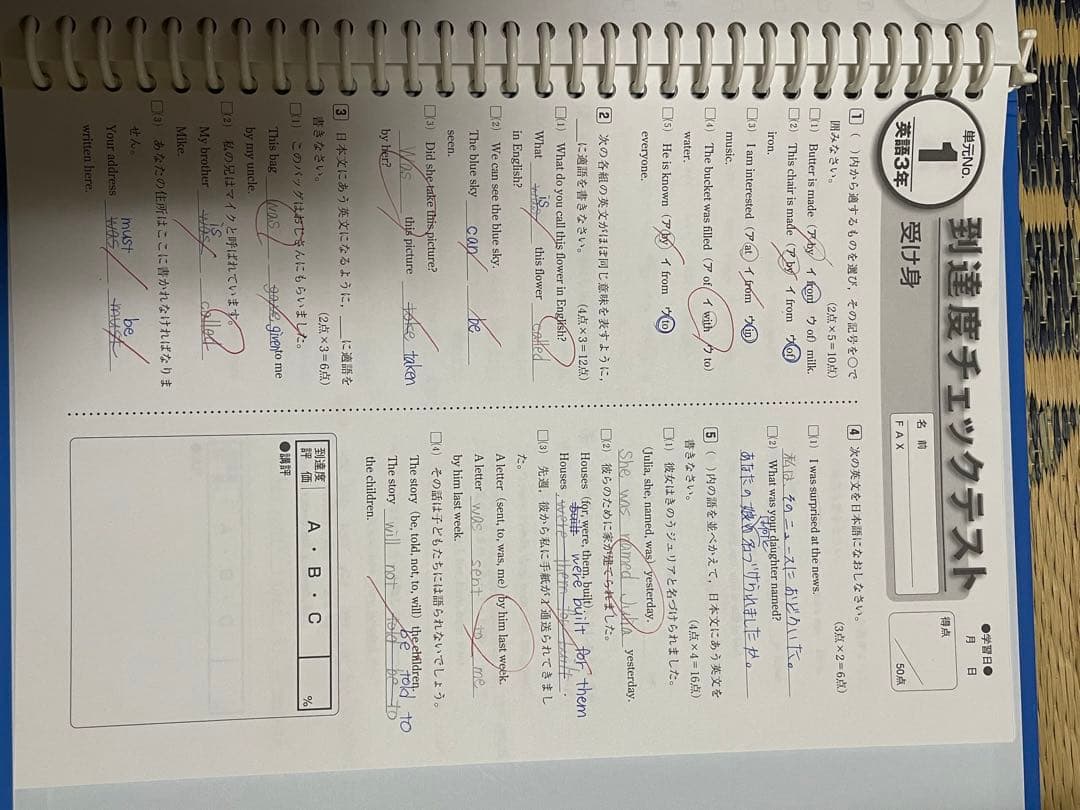 単元No.
1
英語3年
到達度チェックテスト
受け身
名前
FAX
●学習日●
月 日
得点
50点
1 ( )内から適するものを選び、その記号を○で
囲みなさい。 (2点×5=10点)
□(1) Butter is made (ア by イ from ウ of) milk.
□(2) This chair is made (ア by イ from ウ of)
iron.
□(3) I am interested (ア at イ from ウ in)
music.
□(4) The bucket was filled (ア of イ with ウ to)
water.
□(5) He is known (ア by イ from ウ to)
everyone.
2 次の各組の英文がほぼ同じ意味を表すように、
＿に適語を書きなさい。 (4点×3=12点)
□(1) What do you call this flower in English?
What was is this flower called
in English?
□(2) We can see the blue sky.
The blue sky can be
seen.
□(3) Did she take this picture?
Was this picture take taken
by her?
3 日本文にあう英文になるように、＿に適語を
書きなさい。 (2点×3=6点)
□(1) このバッグはおじさんにもらいました。
This bag was gave given to me
by my uncle.
□(2) 私の兄はマイクと呼ばれています。
My brother was is called
Mike.
□(3) あなたの住所はここに書かれなければなりま
せん。
Your address was must must be
written here.
4 次の英文を日本語になおしなさい。
(3点×2=6点)
□(1) I was surprised at the news.
私は そのニュースに おどろいた。
□(2) What was your daughter named?
あなたの娘は 名づけられましたか。
5 ( )内の語を並べかえて、日本文にあう英文を
書きなさい。 (4点×4=16点)
□(1) 彼女はきのうジュリアと名づけられました。
(Julia, she, named, was) yesterday.
She was named Julia yesterday.
□(2) 彼らのために家が建てられました。
Houses (for, were, them, built).
built were built for them
Houses were them for built.
□(3) 先週、彼から私に手紙が送られてきまし
た。
A letter (sent, to, was, me) by him last week.
A letter was sent to me
by him last week.
□(4) その話は子どもたちには語られないでしょう。
The story (be, told, not, to, will) the children.
be told to
The story will not told be to
the children.
到達度
評価
A・B・C
%
●講評